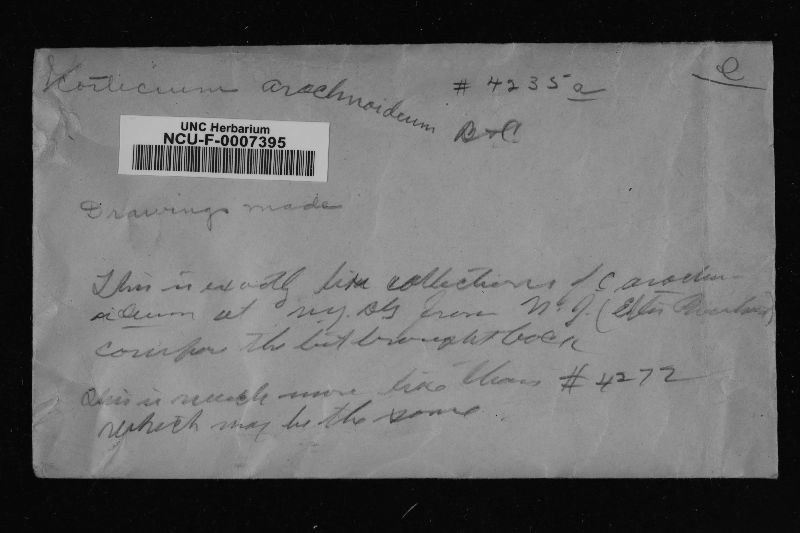 Corticium arachnoideum # 4235a
B & C
UNC Herbarium
NCU-F-0007395
Drawings made
This is exactly like collections of C. arachno-
ideum at N.Y. B.G. from N. J. (Ellis
compare the bit brought back
This is much more like than # 4272
which may be the same.